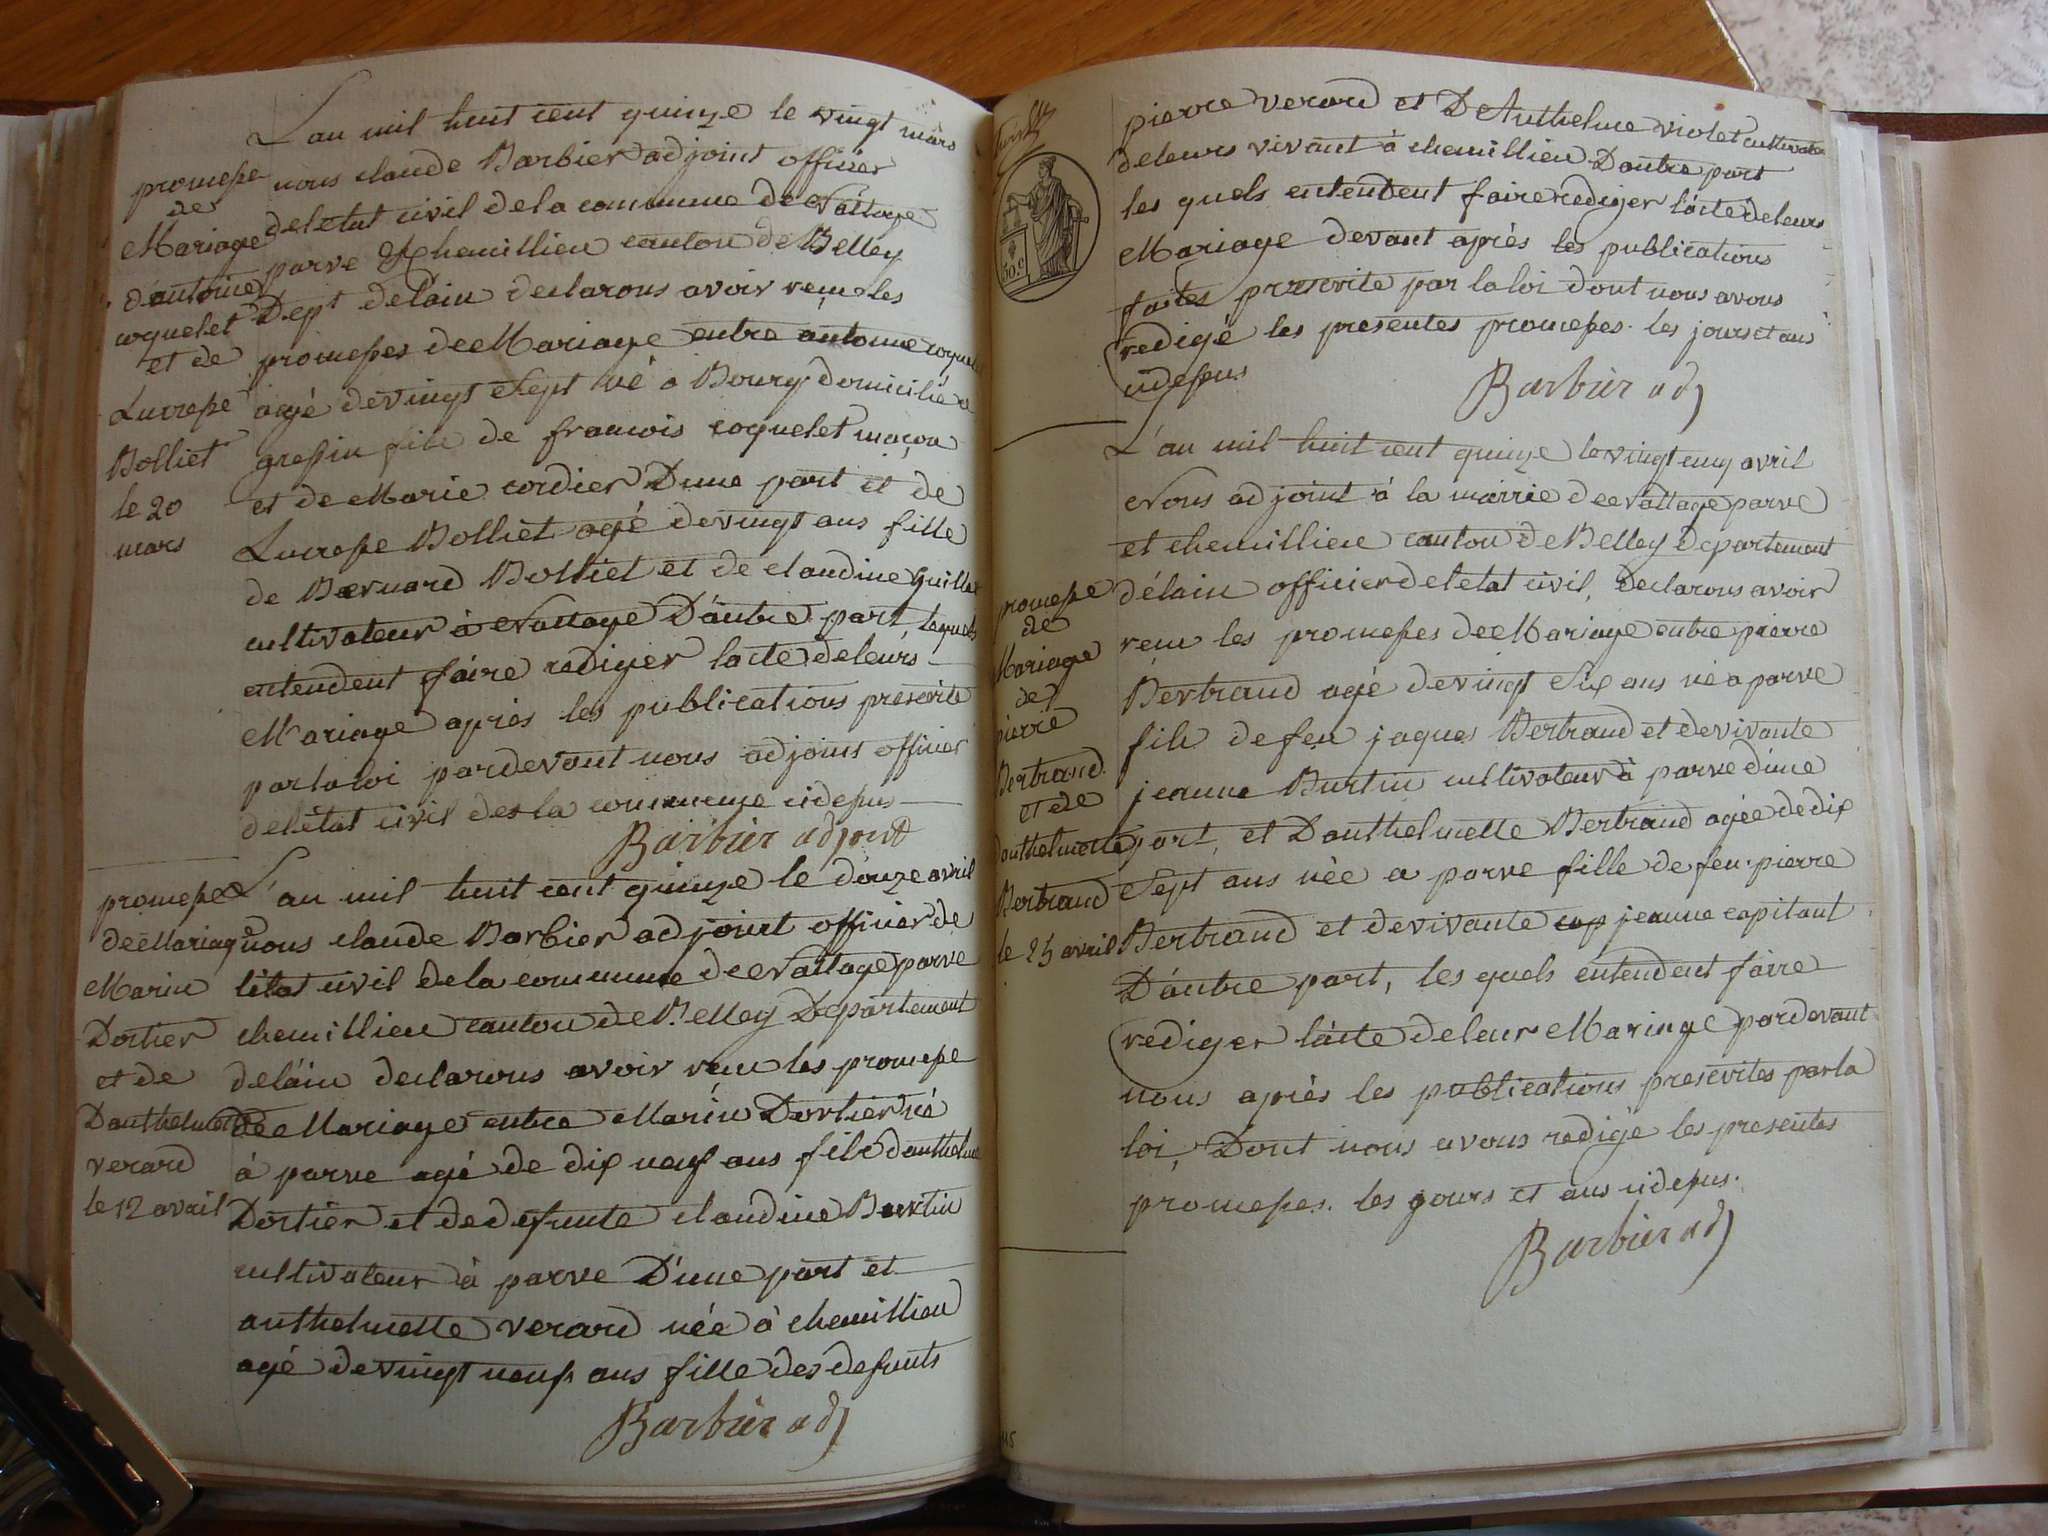 promesse
de
Mariage
d'antoine
coquelet
et de
Lucresse
Bolliet
le 20
mars
L'an mil huit cent quinze le vingt mars
nous claude Barbier adjoint officier
de letat civil de la commune de Nattage
parve Chemillieu canton de Belley
Dept delain declarons avoir recu les
promesses de Mariage entre antoine coquelet
agé de vingt Sept né a Bourg domicilié a
gressin fils de francois coquelet maçon
et de Marie cordier D'une part et de
Lucresse Bolliet agé de vingt ans fille
de Bernard Bolliet et de claudine Guillet
cultivateur à Nattage D'autre part lequels
entendent faire rediger lacte de leurs
Mariage après les publications prescrite
par la loi pardevant nous adjoint officier
de létat civil des la commune cidessus
Barbier adjoint
promesse
de Mariage
Marin
Dortier
et de
Danthelmette
verard
le 12 avril
L'an mil huit cent quinze le douze avril
nous claude Barbier adjoint officier de
létat civil de la commune de Nattage parve
chemillieu canton de Belley Departement
delain declarons avoir recu les promesse
de Mariage entre Marin Dortier né
à parve agé de dix neuf ans fils d'anthelme
Dortier et de defunte claudine Burtin
cultivateur à parve D'une part et
anthelmette verard née à chemillieu
agé de vingt neuf ans fille des defunts
Barbier adj
pierre verard et D'Anthelme violet cultivateur
de leurs vivant à chemillieu D'autre part
les quels entendent faire rediger lacte de leurs
Mariage devant après les publications
faites prescrite par la loi dont nous avons
redigé les presentes promesses. les jours et ans
cidessus
Barbier adj
50.c
promesse
de
Mariage
de
pierre
Bertrand
et de
danthelmette
Bertrand
le 25 avril
L'an mil huit cent quinze le vingt cinq avril
Nous adjoint à la mairie de Nattage parve
et chemillieu canton de Belley Departement
de lain officier de letat civil, Declarons avoir
recu les promesses de Mariage entre pierre
Bertrand agé de vingt Six ans né a parve
fils de feu jaques Bertrand et de vivante
jeanne Burtin cultivateur à parve d'une
part, et D'anthelmette Bertrand agée de dix
Sept ans née a parve fille de feu pierre
Bertrand et de vivante cap jeanne capitant
D'autre part, les quels entendent faire
rediger lacte de leur Mariage pardevant
nous après les publications prescrites par la
loi, Dont nous avons redigé les presentes
promesses. les jours et ans cidessus.
Barbier adj